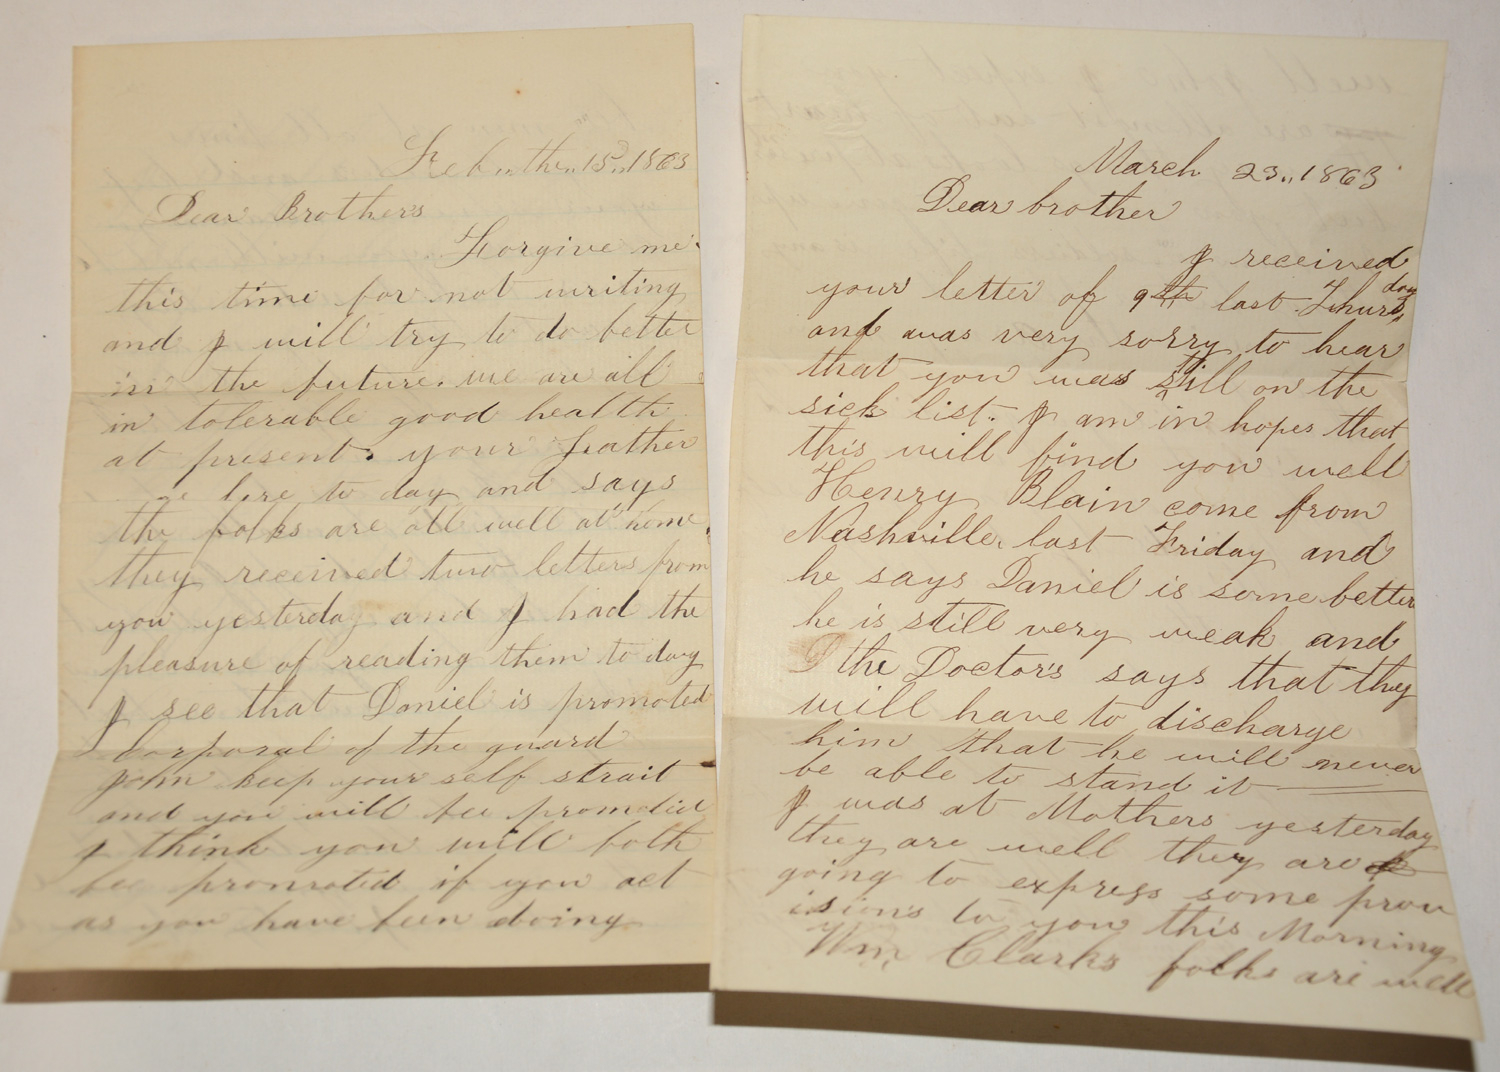 Feb,, the,, 15,, 1863
Dear Brothers
Forgive me
this time for not writing
and I will try to do better
in the future. we are all
in tolerable good health
at present. your father
here to day and says
the folks are all well at home.
they received two letters from
you yesterday and I had the
pleasure of reading them to day
I see that Daniel is promoted
Corporal of the guard
John keep your self strait
and you will bee promoted
I think you will both
bee promoted if you act
as you have been doing
March 23,, 1863
Dear brother
I received
your letter of 9th last Thursday
and was very sorry to hear
that you was still on the
sick list. I am in hopes that
this will find you well
Henry Blain come from
Nashville. last Friday and
he says Daniel is some better
he is still very weak and
the Doctors says that they
will have to discharge
him that he will never
be able to stand it
I was at Mothers yesterday
they are well they are
going to express some prov
isions to you this Morning
Wm Clarks folks are well